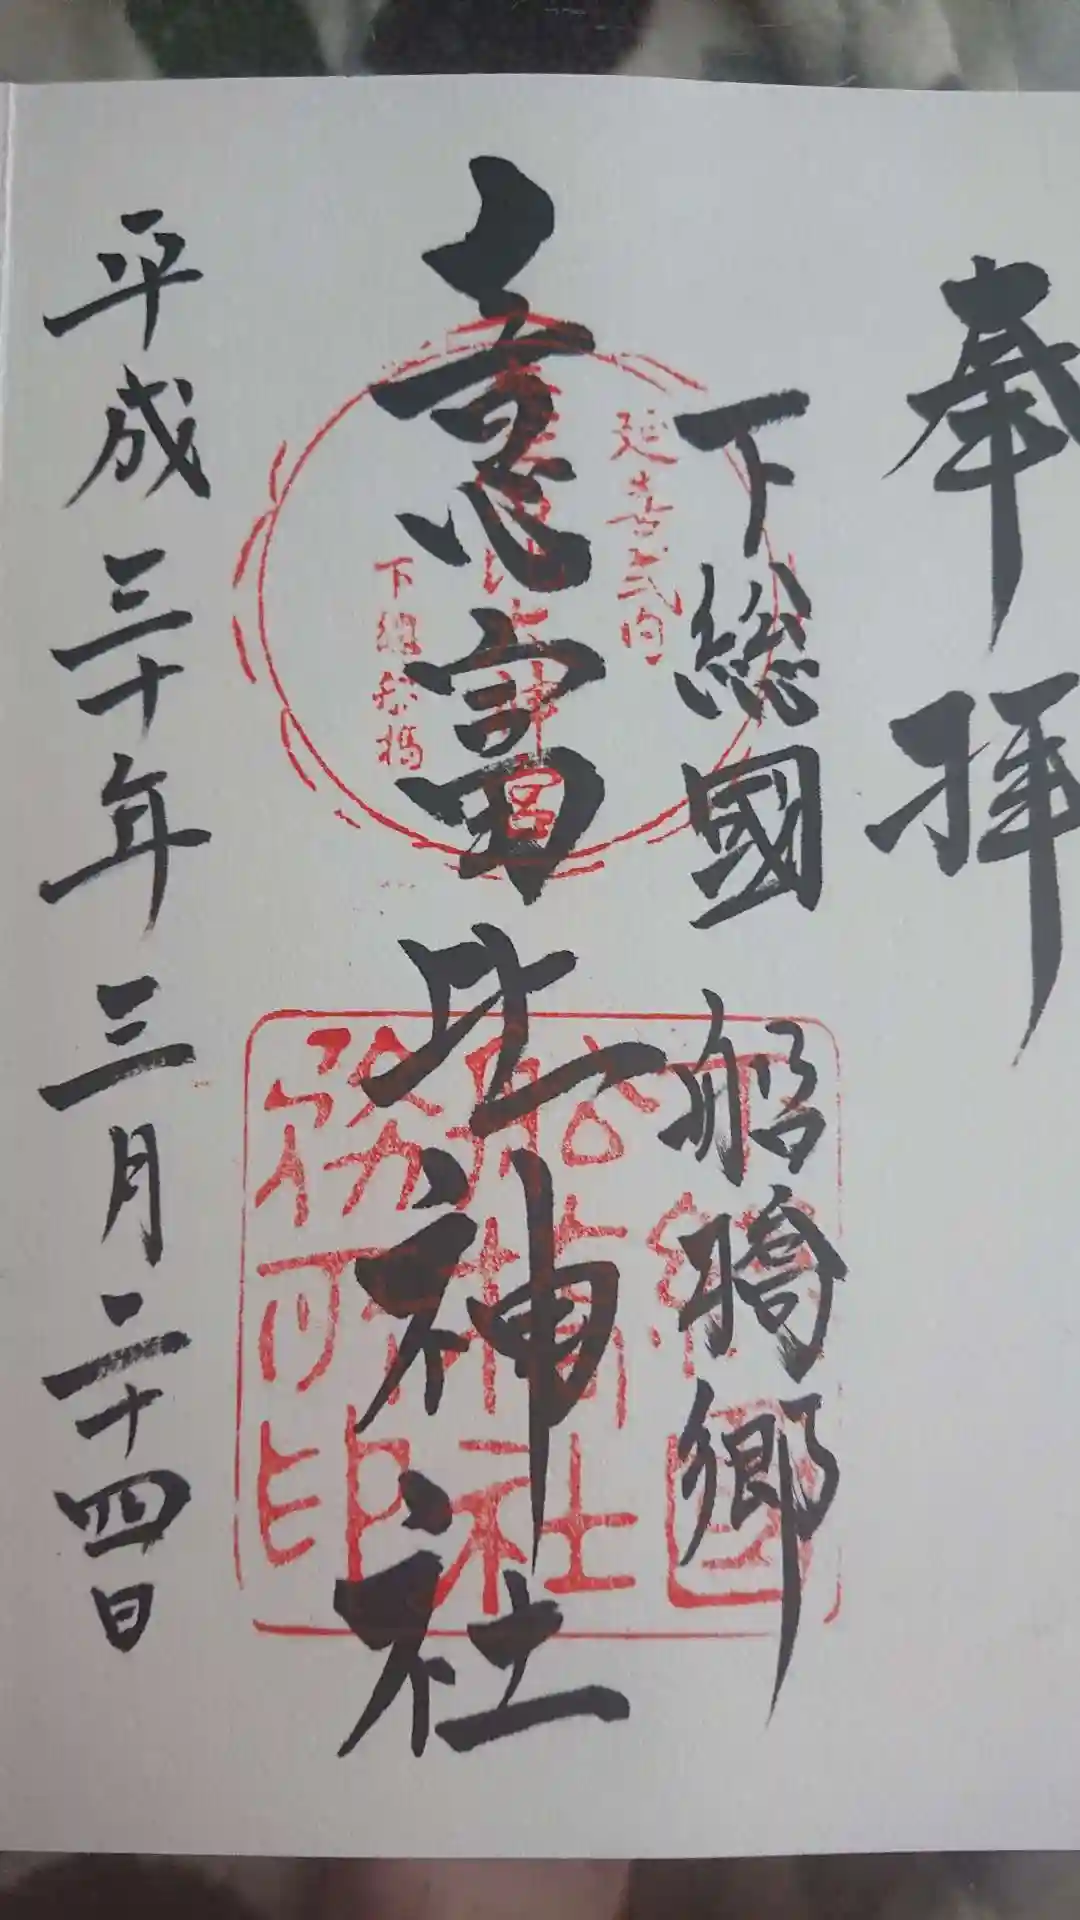 奉拝
下総國船橋郷
意富比神社
平成三十年三月二十四日
延喜式内
意富比大神宮
下総船橋
下総国
船橋
神社
務所印